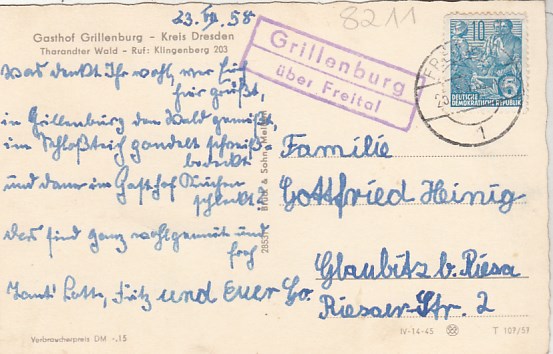 23. VII. 58
8211
Gasthof Grillenburg - Kreis Dresden
Tharandter Wald - Ruf: Klingenberg 203
Grillenburg
über Freital
10
5
DEUTSCHE
DEMOKRATISCHE REPUBLIK
1
Was denkt Ihr wohl, wer Euch
hier grüßt,
in Grillenburg den Wald genießt,
im Schloßteich gondelt
und dann im Gasthof Kuchen
Das sind ganz wohlgemut und
froh
Tante Lotte, Fritz und Euer
Familie
Gottfried Heinig
Glaubitz b. Riesa
Riesaer-Str. 2
Brück & Sohn, Meißen
Verbraucherpreis DM -.15
IV-14-45
T 107/57